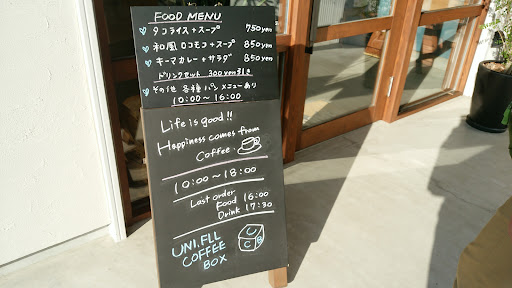 FOOD MENU
タコライス+スープ 750yen
和風ロコモコ+スープ 850yen
キーマカレー+サラダ 850yen
ドリンクセット 300yen引き
その他 各種パンメニューあり
10:00~16:00
Life is good!!
Happiness comes from
Coffee.
10:00~18:00
Last order
Food 16:00
Drink 17:30
UNI.FLL
COFFEE
BOX
U
C B